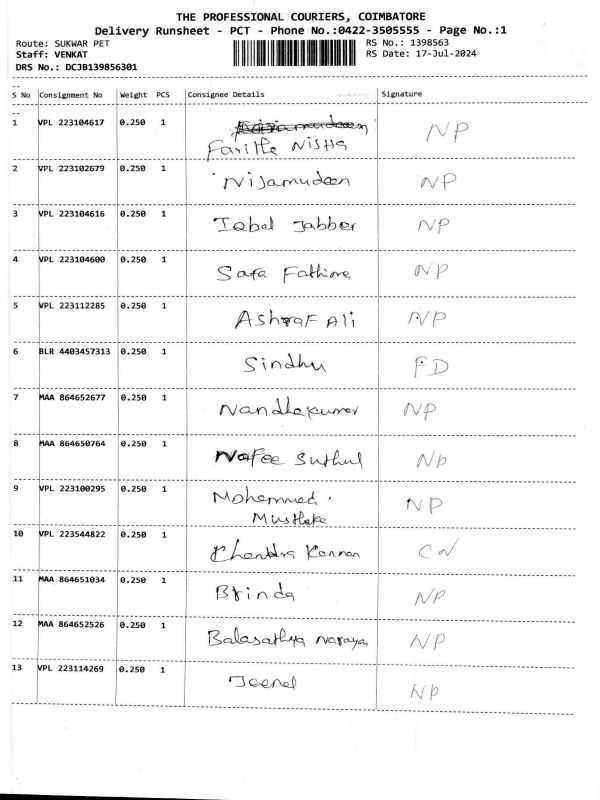 THE PROFESSIONAL COURIERS, COIMBATORE
Delivery Runsheet - PCT - Phone No.:0422-3505555 - Page No.:1
Route: SUKWAR PET RS No.: 1398563
Staff: VENKAT RS Date: 17-Jul-2024
DRS No.: DCJB139856301
--
S No Consignment No Weight PCS Consignee Details Signature
--
1 VPL 223104617 0.250 1 NP
Farithe Nisha
2 VPL 223102679 0.250 1 Nijamudeen NP
3 VPL 223104616 0.250 1 Iqbal Jabber NP
4 VPL 223104600 0.250 1 Safa Fathima NP
5 VPL 223112285 0.250 1 Ashraf Ali NP
6 BLR 4403457313 0.250 1 Sindhu FD
7 MAA 864652677 0.250 1 Nandhakumar NP
8 MAA 864650764 0.250 1 Nafee Suthul NP
9 VPL 223100295 0.250 1 Mohammed NP
Musthake
10 VPL 223544822 0.250 1 Chandra Kannan CN
11 MAA 864651034 0.250 1 Brinda NP
12 MAA 864652526 0.250 1 Balasathya Naraya NP
13 VPL 223114269 0.250 1 Jeenal NP